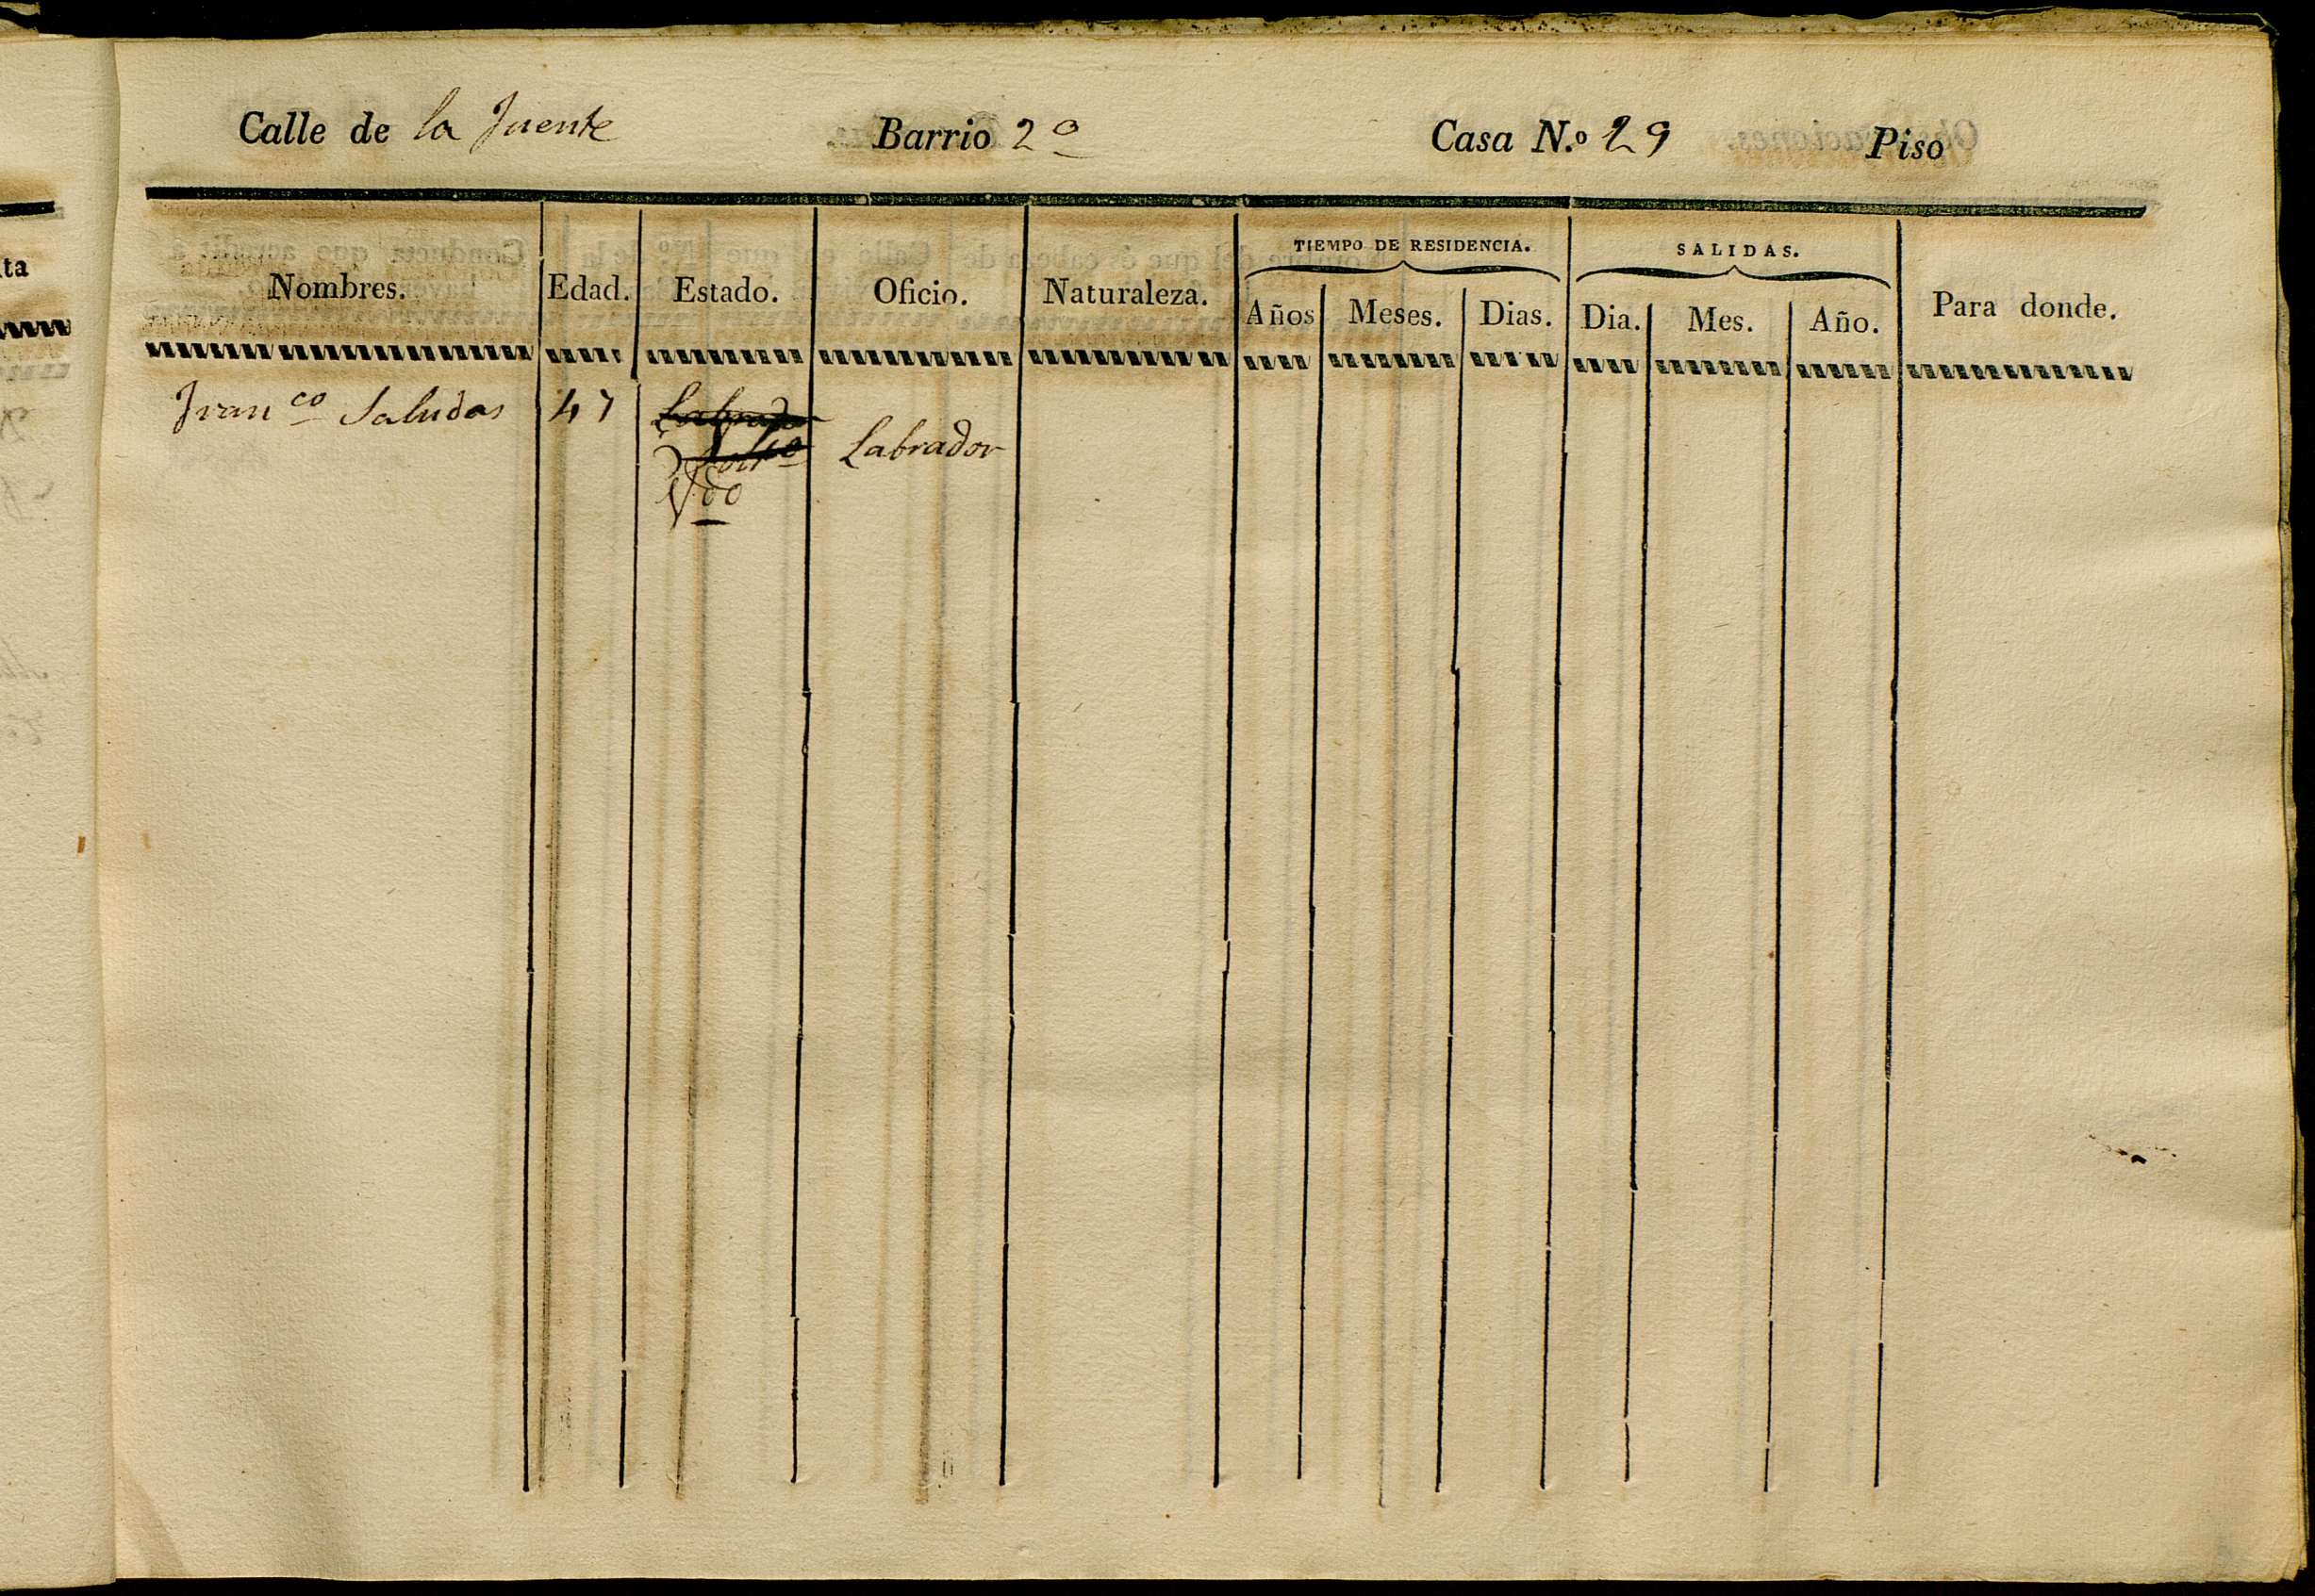 Calle de la Fuente Barrio 2º Casa N.º 29 Piso
TIEMPO DE RESIDENCIA. SALIDAS.
Nombres. Edad. Estado. Oficio. Naturaleza. Años Meses. Dias. Dia. Mes. Año. Para donde.
Franco Saludas 47 Labrador
Solto Labrador
Vdo
ta